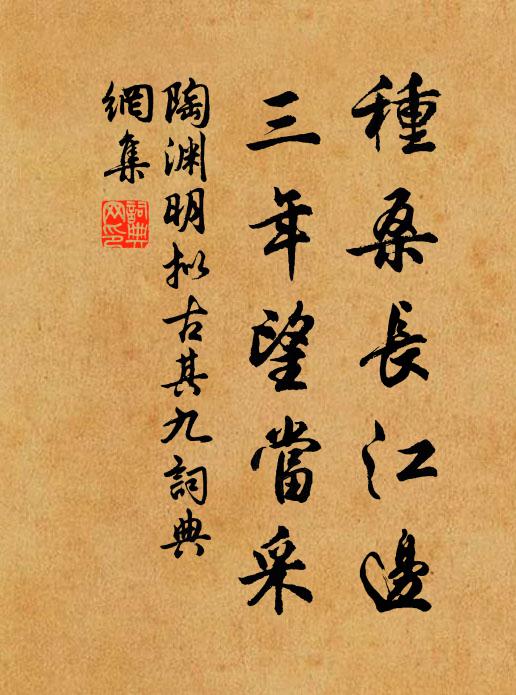 種桑長江邊
三年望當采
陶渊明拟古其九詞典
網集
詞典
网印